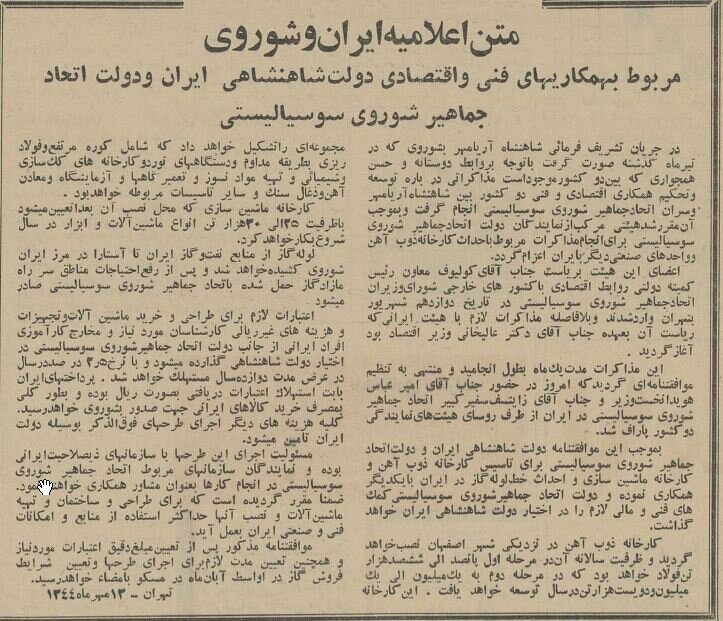 متن اعلامیه ایران و شوروی
مربوط بهمکاریهای فنی و اقتصادی دولت شاهنشاهی ایران و دولت اتحاد
جماهیر شوروی سوسیالیستی
در جریان تشریف فرمائی شاهنشاه آریامهر بشوروی که در
تیرماه گذشته صورت گرفت باتوجه بروابط دوستانه و حسن
همجواری که بین دو کشور موجود است مذاکراتی در باره توسعه
و تحکیم همکاری اقتصادی و فنی دو کشور بین شاهنشاه آریامهر
وسران اتحاد جماهیر شوروی سوسیالیستی انجام گرفت و بموجب
آن مقرر شد هیئتی مرکب از نمایندگان دولت اتحاد جماهیر شوروی
سوسیالیستی برای انجام مذاکرات مربوط باحداث کارخانه ذوب آهن
و واحدهای صنعتی دیگر بایران اعزام گردد.
اعضای این هیئت بریاست جناب آقای کولیوف معاون رئیس
کمیته دولتی روابط اقتصادی با کشور های خارجی شورای وزیران
اتحاد جماهیر شوروی سوسیالیستی در تاریخ دوازدهم شهریور
بتهران وارد شدند وبلافاصله مذاکرات لازم با هیئت ایرانی که
ریاست آن بعهده جناب آقای دکتر عالیخانی وزیر اقتصاد بود
آغاز گردید .
این مذاکرات مدت یک ماه بطول انجامید و منتهی به تنظیم
موافقتنامه ای گردید که امروز در حضور جناب آقای امیر عباس
هویدا نخست وزیر و جناب آقای زایتسف سفیر کبیر اتحاد جماهیر
شوروی سوسیالیستی در ایران از طرف روسای هیئت های نمایندگی
دو کشور پاراف شد.
بموجب این موافقتنامه دولت شاهنشاهی ایران و دولت اتحاد
جماهیر شوروی سوسیالیستی برای تاسیس کارخانه ذوب آهن و
کارخانه ماشین سازی و احداث خط لوله گاز در ایران بایکدیگر
همکاری نموده و دولت اتحاد جماهیر شوروی سوسیالیستی کمک
های فنی و مالی لازم را در اختیار دولت شاهنشاهی ایران خواهد
گذاشت.
کارخانه ذوب آهن در نزدیکی شهر اصفهان نصب خواهد
گردید و ظرفیت سالانه آن در مرحله اول پانصد الی ششصد هزار
تن فولاد خواهد بود که در مرحله دوم به یک میلیون الی یک
میلیون و دویست هزار تن در سال توسعه خواهد یافت . این کارخانه
مجموعه ای را تشکیل خواهد داد که شامل کوره مرتفع و فولاد
ریزی بطریقه مداوم و دستگاههای نورد و کارخانه های کک سازی
وشیمیائی و تهیه مواد نسوز و تعمیر گاهها و آزمایشگاه و معادن
آهن و ذغال سنگ و سایر تاسیسات مربوطه خواهد بود.
کارخانه ماشین سازی که محل نصب آن بعدا تعیین میشود
باظرفیت ۲۵ الی ۳۰ هزار تن انواع ماشین آلات و ابزار در سال
شروع بکار خواهد کرد.
لوله گاز از منابع نفت و گاز ایران تا آستارا در مرز ایران
شوروی کشیده خواهد شد و پس از رفع احتیاجات مناطق سر راه
مازاد گاز حمل شده باتحاد جماهیر شوروی سوسیالیستی صادر
میشود
اعتبارات لازم برای طراحی و خرید ماشین آلات و تجهیزات
و هزینه های غیر ریالی کارشناسان مورد نیاز و مخارج کارآموزی
افراد ایرانی از جانب دولت اتحاد جماهیر شوروی سوسیالیستی در
اختیار دولت شاهنشاهی گذارده میشود و با نرخ ۲٫۵ در صد در سال
در عرض مدت دوازده سال مستهلک خواهد شد . پرداختهای ایران
بابت استهلاک اعتبارات دریافتی بصورت ریال بوده و بطور کلی
بمصرف خرید کالاهای ایرانی جهت صدور بشوروی خواهد رسید.
کلیه هزینه های دیگر اجرای طرحهای فوق الذکر بوسیله دولت
ایران تامین میشود.
مسئولیت اجرای این طرحها با سازمانهای ذیصلاحیت ایرانی
بوده و نمایندگان سازمانهای مربوط اتحاد جماهیر شوروی
سوسیالیستی در انجام کارها بعنوان مشاور همکاری خواهند نمود.
ضمنا مقرر گردیده است که برای طراحی و ساختمان و تهیه
ماشین آلات و نصب آنها حداکثر استفاده از منابع و امکانات
فنی و صنعتی ایران بعمل آید.
موافقتنامه مذکور پس از تعیین مبلغ دقیق اعتبارات مورد نیاز
و همچنین تعیین مدت لازم برای اجرای طرحها و تعیین شرایط
فروش گاز در اواسط آبان ماه در مسکو بامضاء خواهد رسید.
تهران – ۱۳ مهر ماه ۱۳۴۴